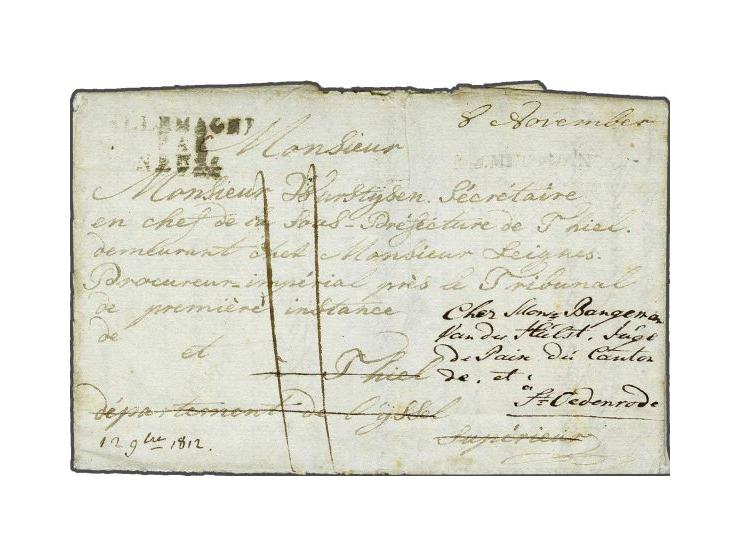 8 November
ALLEMAGNE
PAR
Monsieur
Monsieur Wurstysen. Sécrétaire
en chef de la Sous-Préfecture de Thiel.
demeurant chez Monsieur Leignes.
Procureur-impérial près le Tribunal
de première instance
de
et
à Thiel
département de l'yssel
Supérieur
Cher Monsr Bangeman
Van der Hulst, Juge
de Paix du Canton
de. et
à
St Oedenrode
12 9bre 1812.